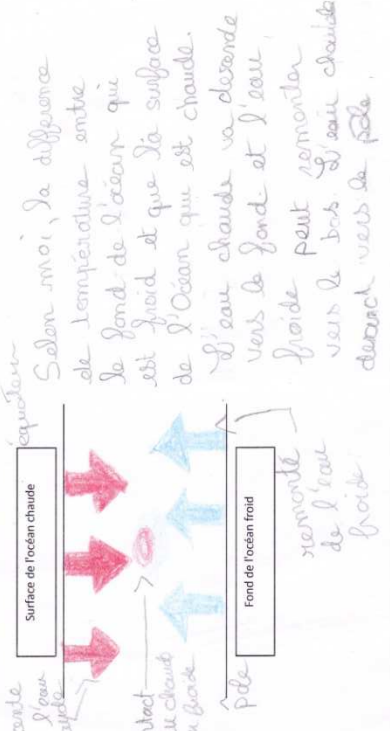 équateur
Surface de l'océan chaude
l'eau
Fond de l'océan froid
Pôle
remonté
de l'eau
froide
Selon moi, la différence
de température entre
le fond de l'océan qui
est froid et que la surface
de l'Océan qui est chaude.
L'eau chaude va descende
vers le fond et l'eau
froide peut remonter
vers le bas. L'eau chaude
descend vers le pôle